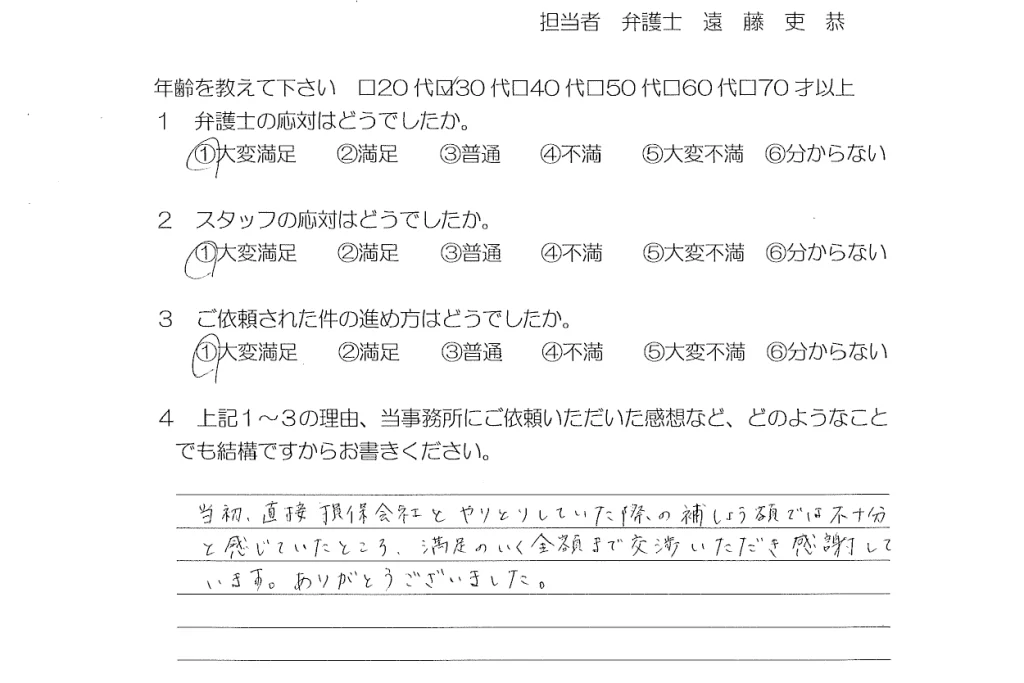 担当者　弁護士　遠　藤　吏　恭
年齢を教えて下さい　□20代☑30代□40代□50代□60代□70才以上
１　弁護士の応対はどうでしたか。
①大変満足　②満足　③普通　④不満　⑤大変不満　⑥分からない
２　スタッフの応対はどうでしたか。
①大変満足　②満足　③普通　④不満　⑤大変不満　⑥分からない
３　ご依頼された件の進め方はどうでしたか。
①大変満足　②満足　③普通　④不満　⑤大変不満　⑥分からない
４　上記１～３の理由、当事務所にご依頼いただいた感想など、どのようなこと
でも結構ですからお書きください。
当初、直接損保会社とやりとりしていた際の補しょう額では不十分
と感じていたところ、満足のいく金額まで交渉いただき感謝して
います。ありがとうございました。